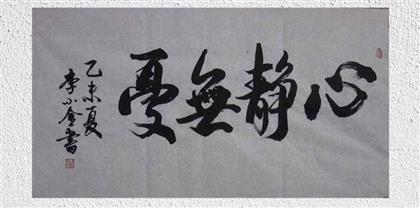 心静無憂
乙未夏
李小金書